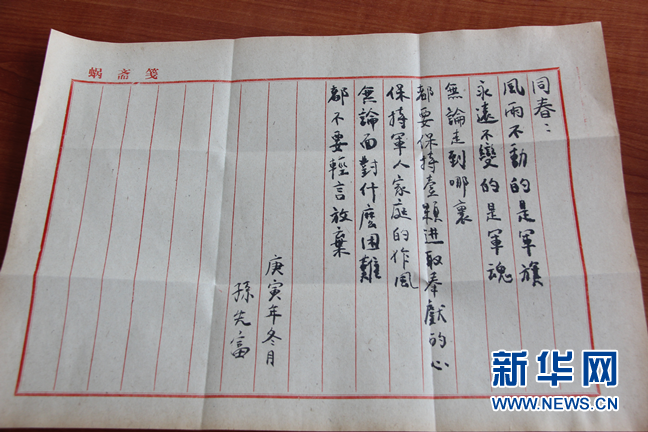 蝸斎箋
同春：
風雨不動的是軍旗
永遠不變的是軍魂
無論走到哪裏
都要保持壹顆進取奉獻的心
保持軍人家庭的作風
無論面對什麼困難
都不要輕言放棄
庚寅年冬月
孫先富
新华网
WWW.NEWS.CN